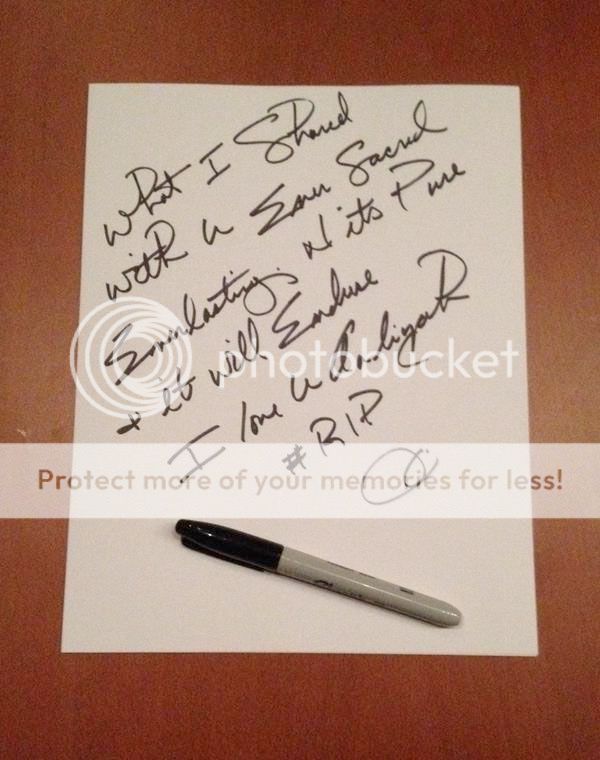 What I Shared
with u Ever Sacred
Everlasting. N its Pure
+ it will Endure
I love u Aaliyah
#RIP
photobucket
Protect more of your memories for less!